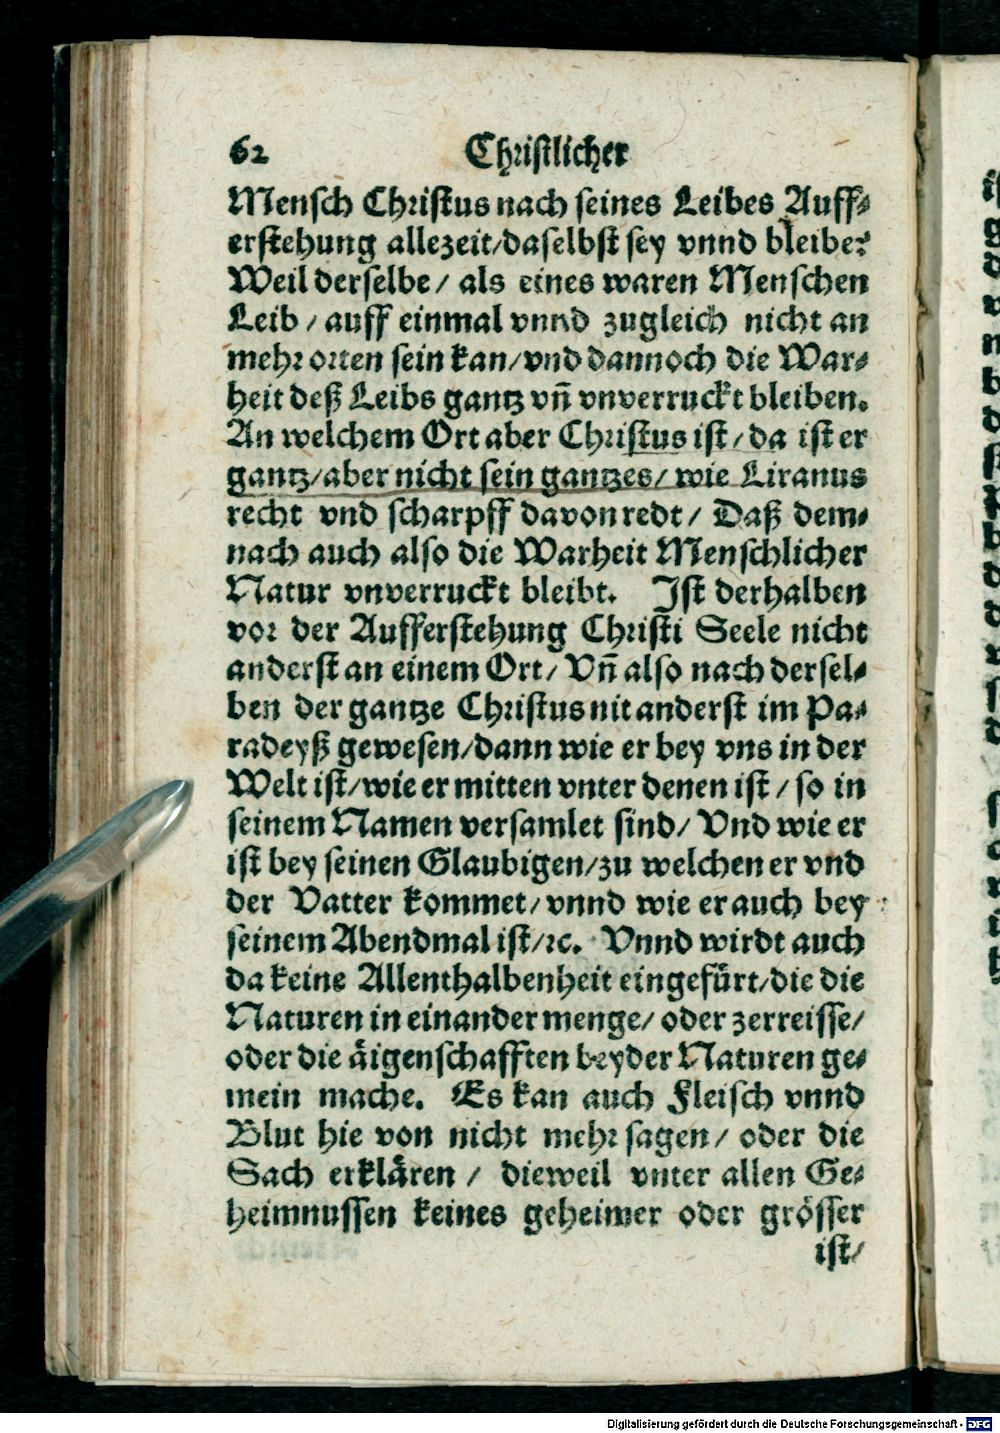 62 Christlicher
Mensch Christus nach seines Leibes Auff-
erstehung allezeit/daselbst sey vnnd bleibe?
Weil derselbe/ als eines waren Menschen
Leib/ auff einmal vnnd zugleich nicht an
mehr orten sein kan/vnd dannoch die War-
heit deß Leibs gantz vñ vnverruckt bleiben.
An welchem Ort aber Christus ist/da ist er
gantz/aber nicht sein gantzes/ wie Liranus
recht vnd scharpff davon redt/ Daß dem-
nach auch also die Warheit Menschlicher
Natur vnverruckt bleibt. Ist derhalben
vor der Aufferstehung Christi Seele nicht
anderst an einem Ort/ Vñ also nach dersel-
ben der gantze Christus nit anderst im Pa-
radeyß gewesen/dann wie er bey vns in der
Welt ist/wie er mitten vnter denen ist/ so in
seinem Namen versamlet sind/ Vnd wie er
ist bey seinen Glaubigen/zu welchen er vnd
der Vatter kommet/vnnd wie er auch bey
seinem Abendmal ist/ꝛc. Vnnd wirdt auch
da keine Allenthalbenheit eingefürt/die die
Naturen in einander menge/ oder zerreisse/
oder die äigenschafften beyder Naturen ge-
mein mache. Es kan auch Fleisch vnnd
Blut hie von nicht mehr sagen/ oder die
Sach erklären/ dieweil vnter allen Ge-
heimnussen keines geheimer oder grösser
ist/
Digitalisierung gefördert durch die Deutsche Forschungsgemeinschaft - DFG